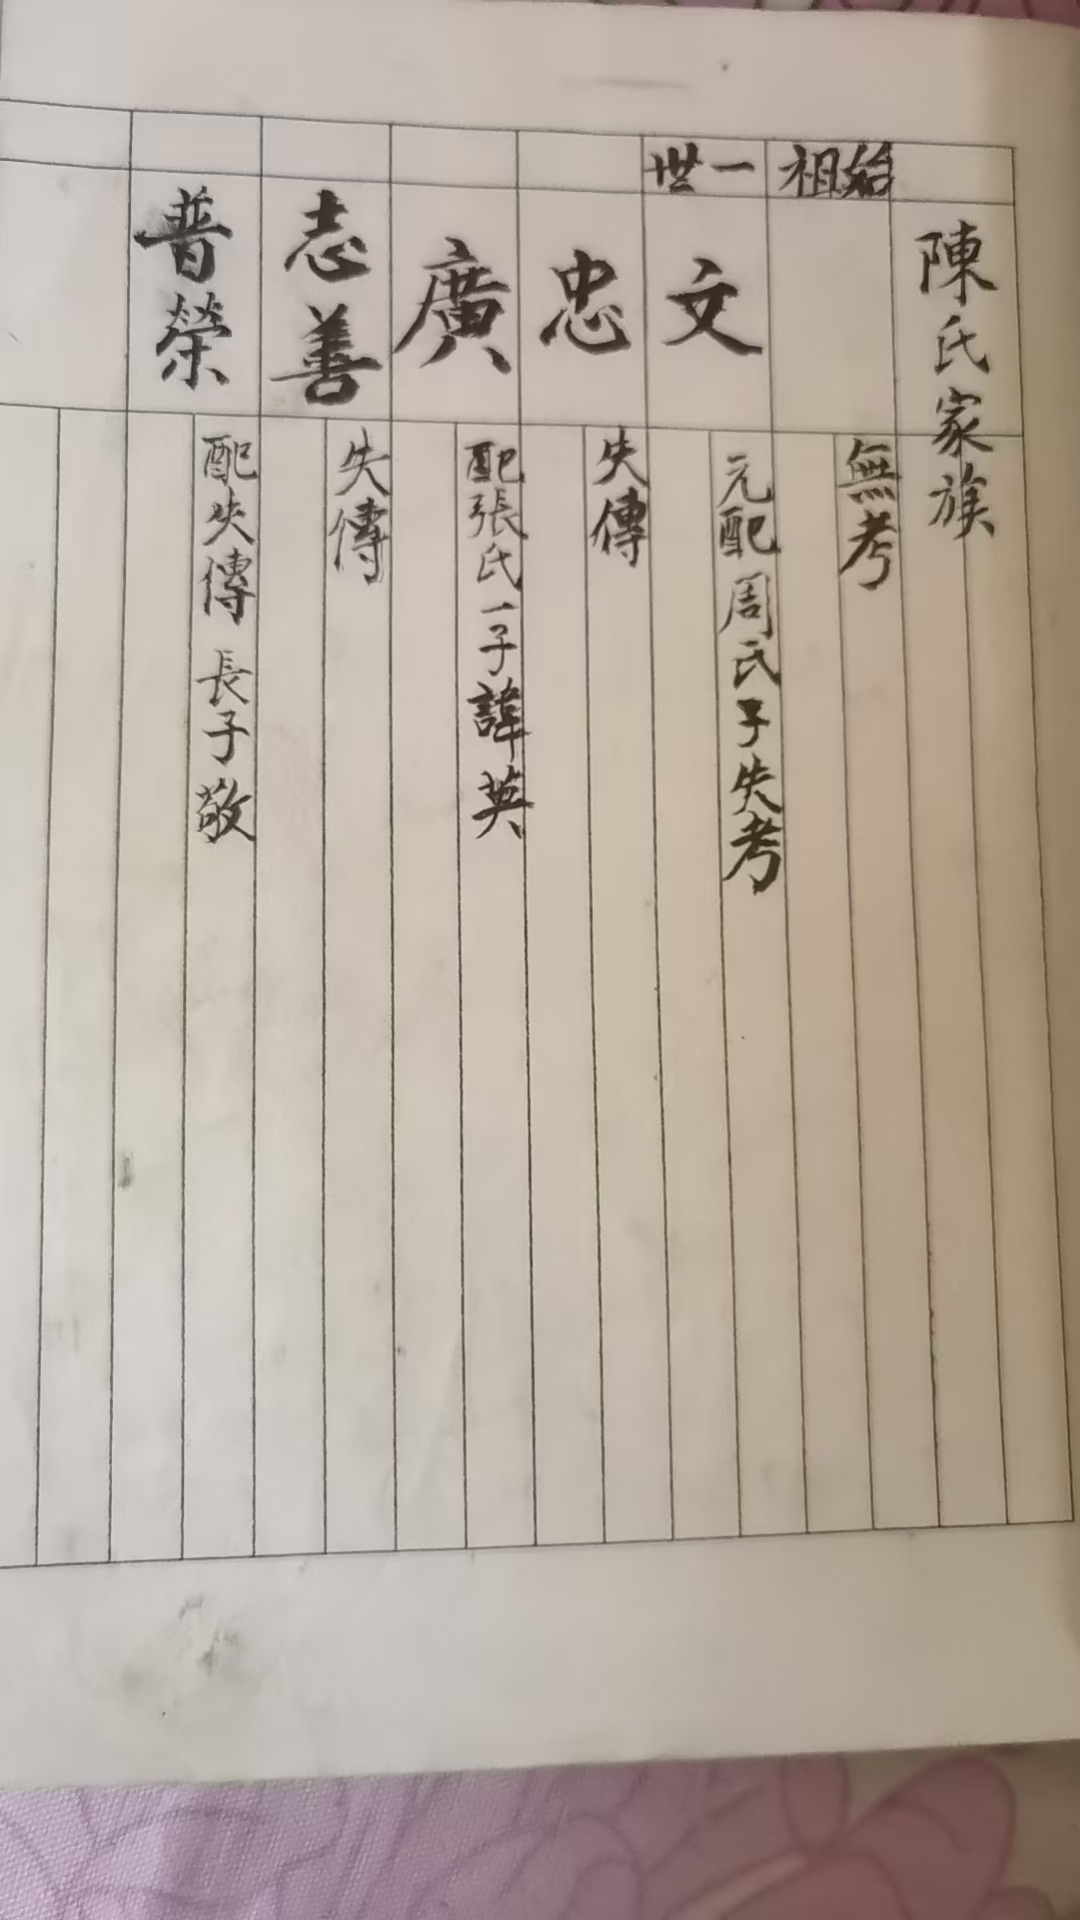 陳氏家族
始祖
無考
一世
文
元配周氏子失考
忠
失傳
廣
配張氏一子諱英
志善
失傳
普榮
配失傳 長子敬